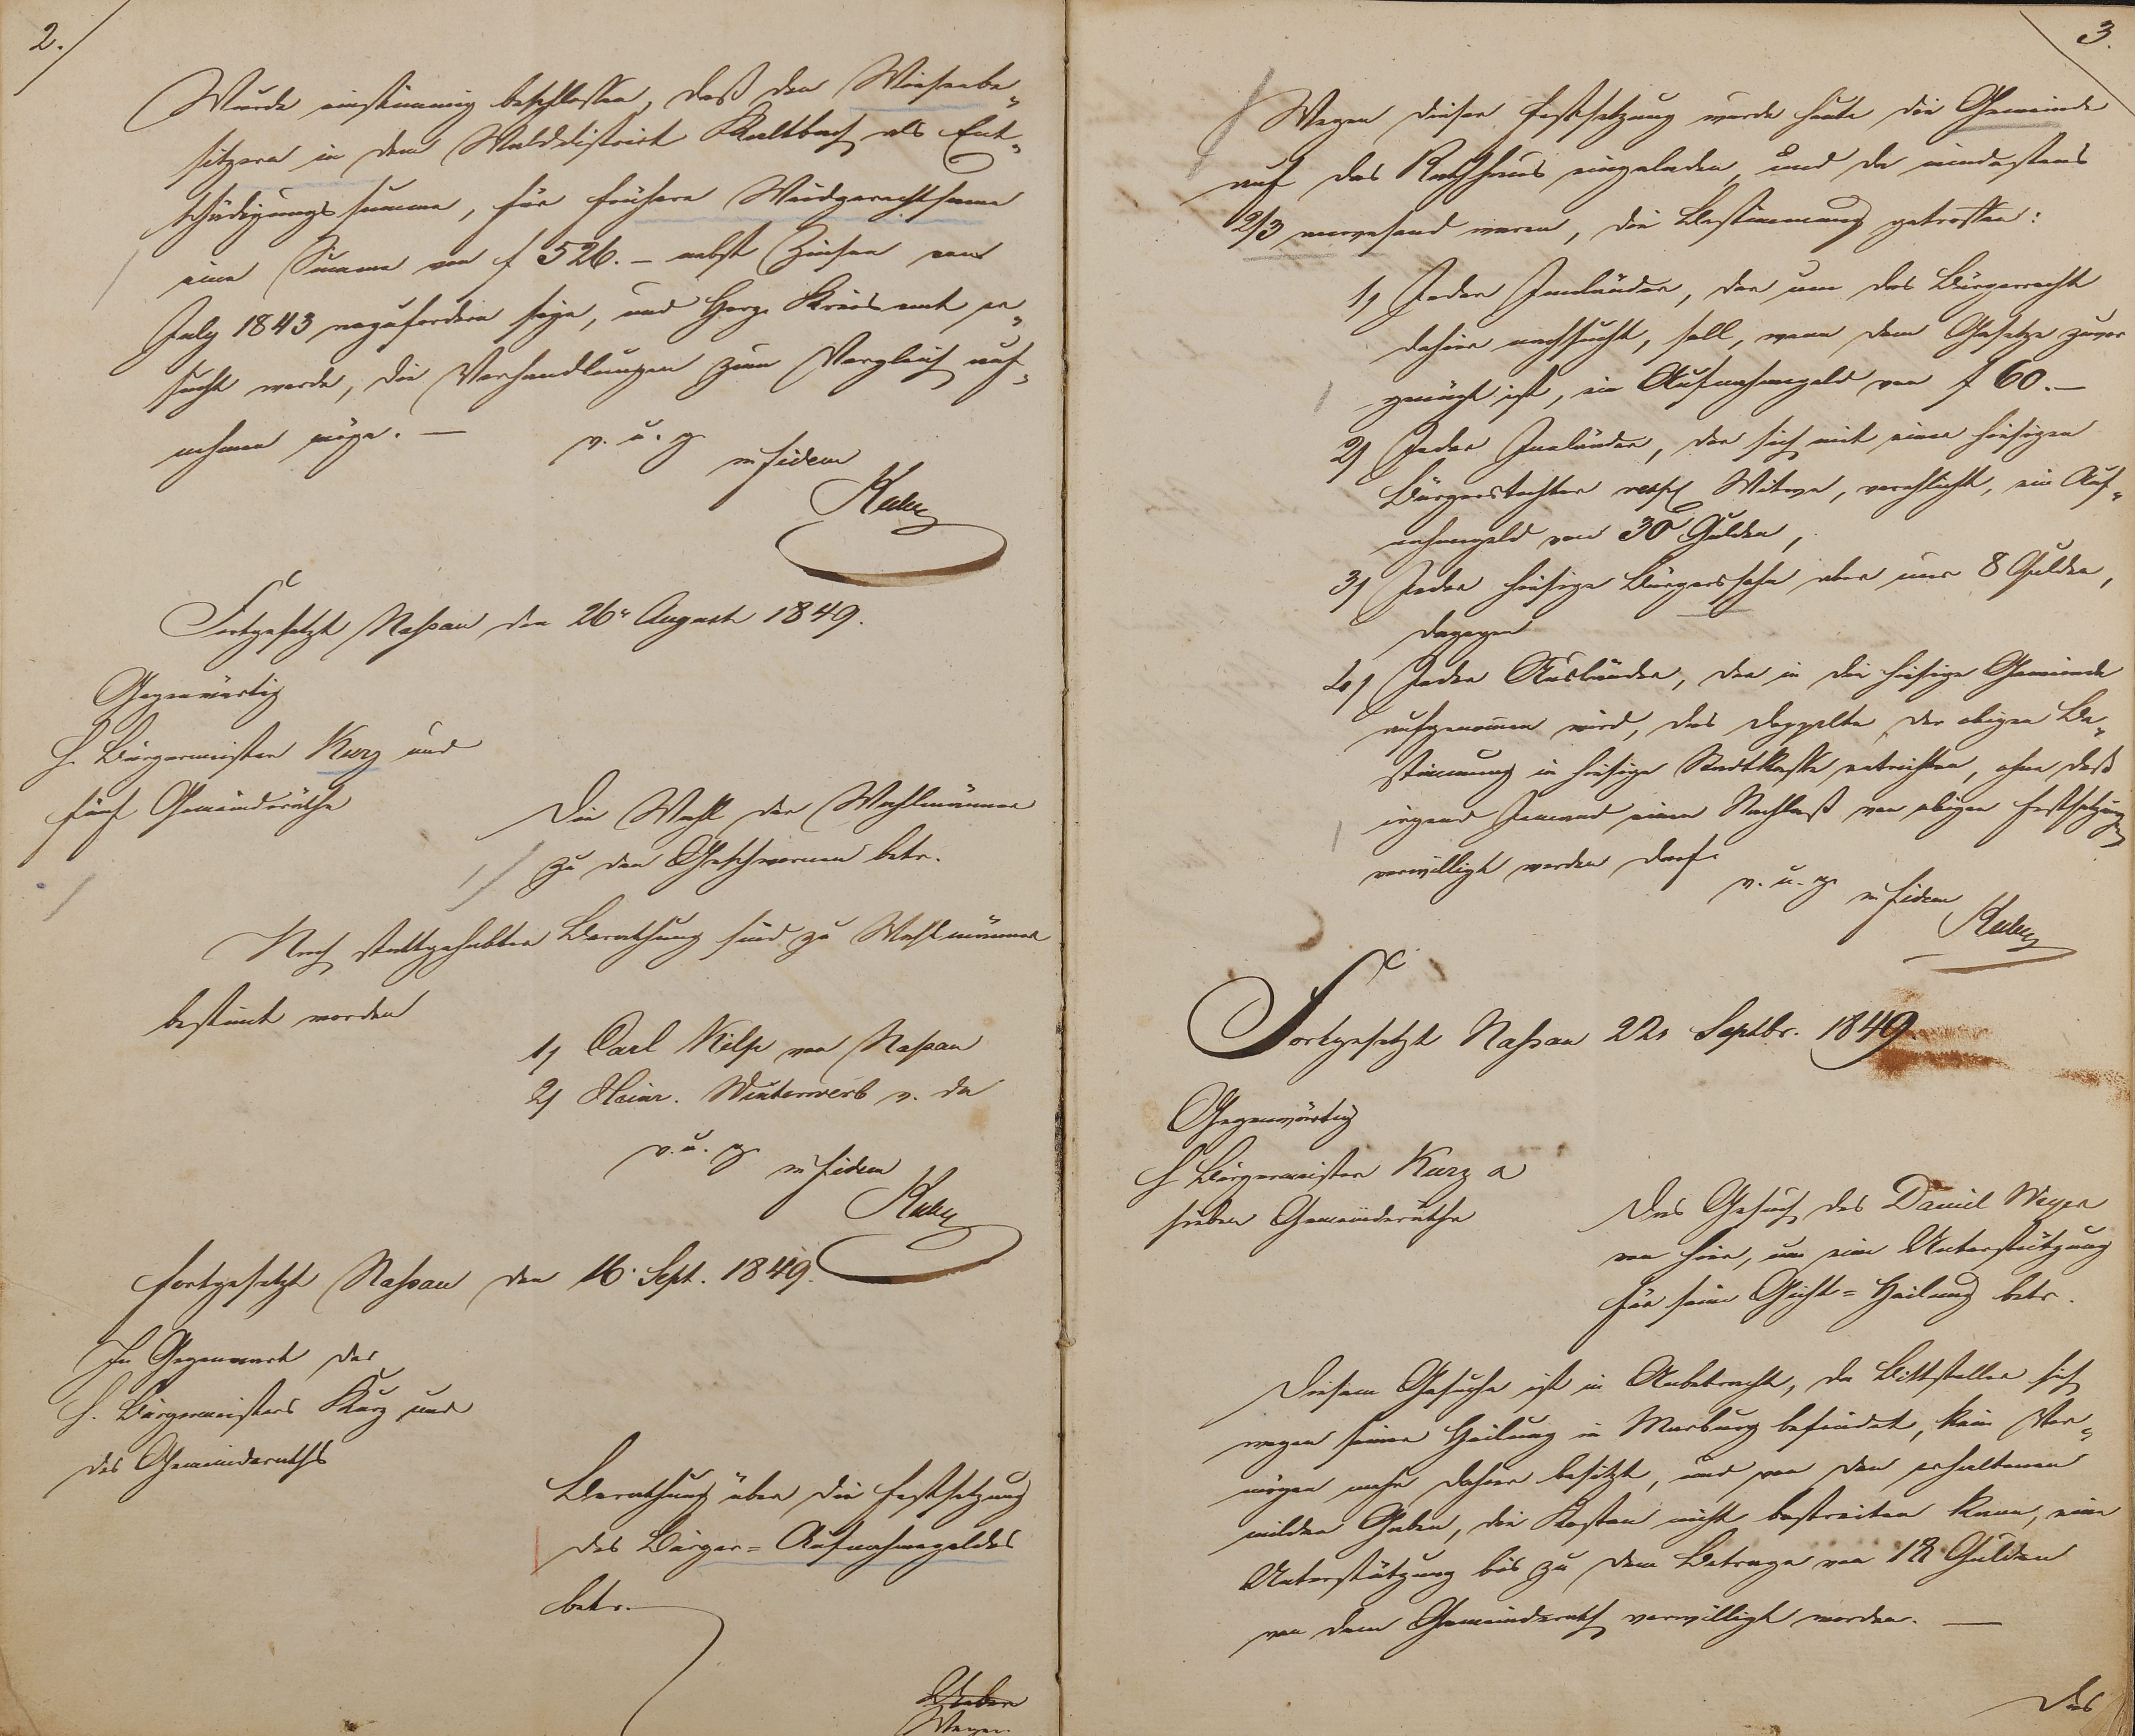 2.
Wurde einstimmig beschlossen, daß den Wiesenbe„
sitzern in dem Walddistrict Kaltbach als Ent„
schädigungssumme, für frühere Weidgerechtsame
eine Summe von f 526. – nebst Zinsen vom
July 1843 anzufordern seye, und Herz. Kreisamt er„
sucht werde, die Verhandlungen zum Vergleich auf„
nehmen möge. —
v. u. g.
in fidem
Fortgesetzt Nassau den 26n August 1849.
Gegenwärtig
H. Bürgermeister Kurz und
fünf Gemeinderäthe
Die Wahl der Wahlmänner
zu den Geschwornen betr.
Nach stattgehabter Berathung sind zu Wahlmänner
bestimt worden
1, Carl Kilp von Nassau
2, Heinr. Winterwerb v. da
v. u. g.
in fidem
fortgesetzt Nassau den 16. Sept. 1849.
In Gegenwart des
H. Bürgermeisters Kurz und
des Gemeinderaths
Berathung über die Festsetzung
des Bürger=Aufnahmegeldes
betr.
Wegen
3.
Wegen dieser Festsetzung wurde heute die Gemeinde
auf das Rathhaus eingeladen, und da mindestens
2/3 anwesend waren, die Bestimmung getroffen:
1, Jeder Inländer, der um das Bürgerrecht
dahier nachsucht, soll, wenn dem Gesetze zuvor
genügt ist, ein Aufnahmegeld von f 60. –
2, Jeder Inländer, der sich mit einer hiesigen
Bürgerstochter resp. Witwe, verehlicht, ein Auf„
nahmegeld von 30 Gulden,
3, Jeder hiesige Bürgerssohn aber nur 8 Gulden,
dagegen
4, Jeder Ausländer, der in die hiesige Gemeinde
aufgenommen wird, das doppelte der obigen Be„
stimmung in hiesige Stadtkasse entrichten, ohne daß
irgend Jemand einen Nachlaß von obigen Festsetzungen
verwilligt werden darf.
v. u. g.
in fidem
Fortgesetzt Nassau 22n Septbr. 1849.
Gegenwärtig
H Bürgermeister Kurz
sieben Gemeinderäthe
Das Gesuch des Daniel Meyer
von hier, um eine Unterstützung
für seine Gicht=Heilung betr.
Diesem Gesuche ist in Anbetracht, da Bittsteller sich
wegen seiner Heilung in Marburg befindet, kein Ver„
mögen mehr dahier besitzt, und von den erhaltenen
milden Gaben, die Kosten nicht bestreiten kann, eine
Unterstützung bis zu dem Betrage von 18 Gulden
von dem Gemeinderath verwilligt worden. —
Das